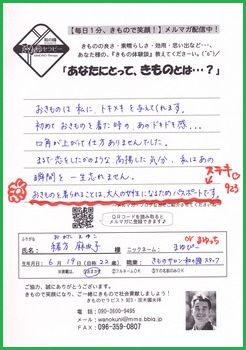 【毎日1分、きもので笑顔!】メルマガ配信中!
きものの良さ・素晴らしさ・効用・思い出など…、
あなた様の、『きもの体験談』教えてください。(^o^)/
「あなたにとって、きものとは…?」
おきものは私に、トキメキを与えてくれます。
初めておきものを着た時の、あのドキドキ感…
口角が上がって仕方ありませんでした。
まるで恋をしたかのような高揚した気分、私はあの
瞬間を一生忘れません。
おきものを着られることは、大人の女性になるためのパスポートです。
ステキ
923
QRコードを読み取ると
メルマガ登録できます
ふりがな
氏名:緒方 麻由子 様
ニックネーム:まゆぴー
or まゆっち
生年月日 6月19日(当時22歳)
きものサロン和の國スタッフ
ご協力、誠にありがとうございます。
きもので笑顔になり、ご一緒にきもので社会貢献しましょう!
きものセラピスト
電話:090-3600-9495
メール:wanokuni@mms.bbiq.jp
FAX:096-359-0807